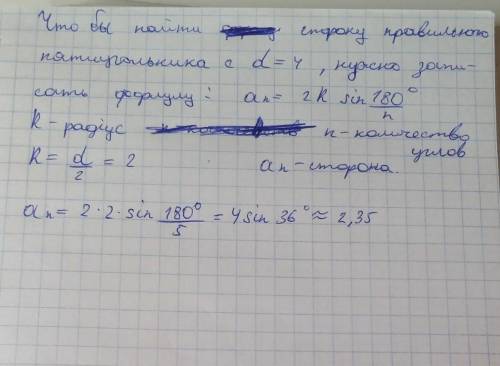 Что бы найти сторону правильного
пятиугольника с d = 4, нужно запи-
сать формулу: aₙ = 2R sin 180°/n
R - радіус n - количество
углов
R = d/2 = 2 aₙ - сторона.
aₙ = 2 · 2 · sin 180°/5 = 4 sin 36° ≈ 2,35